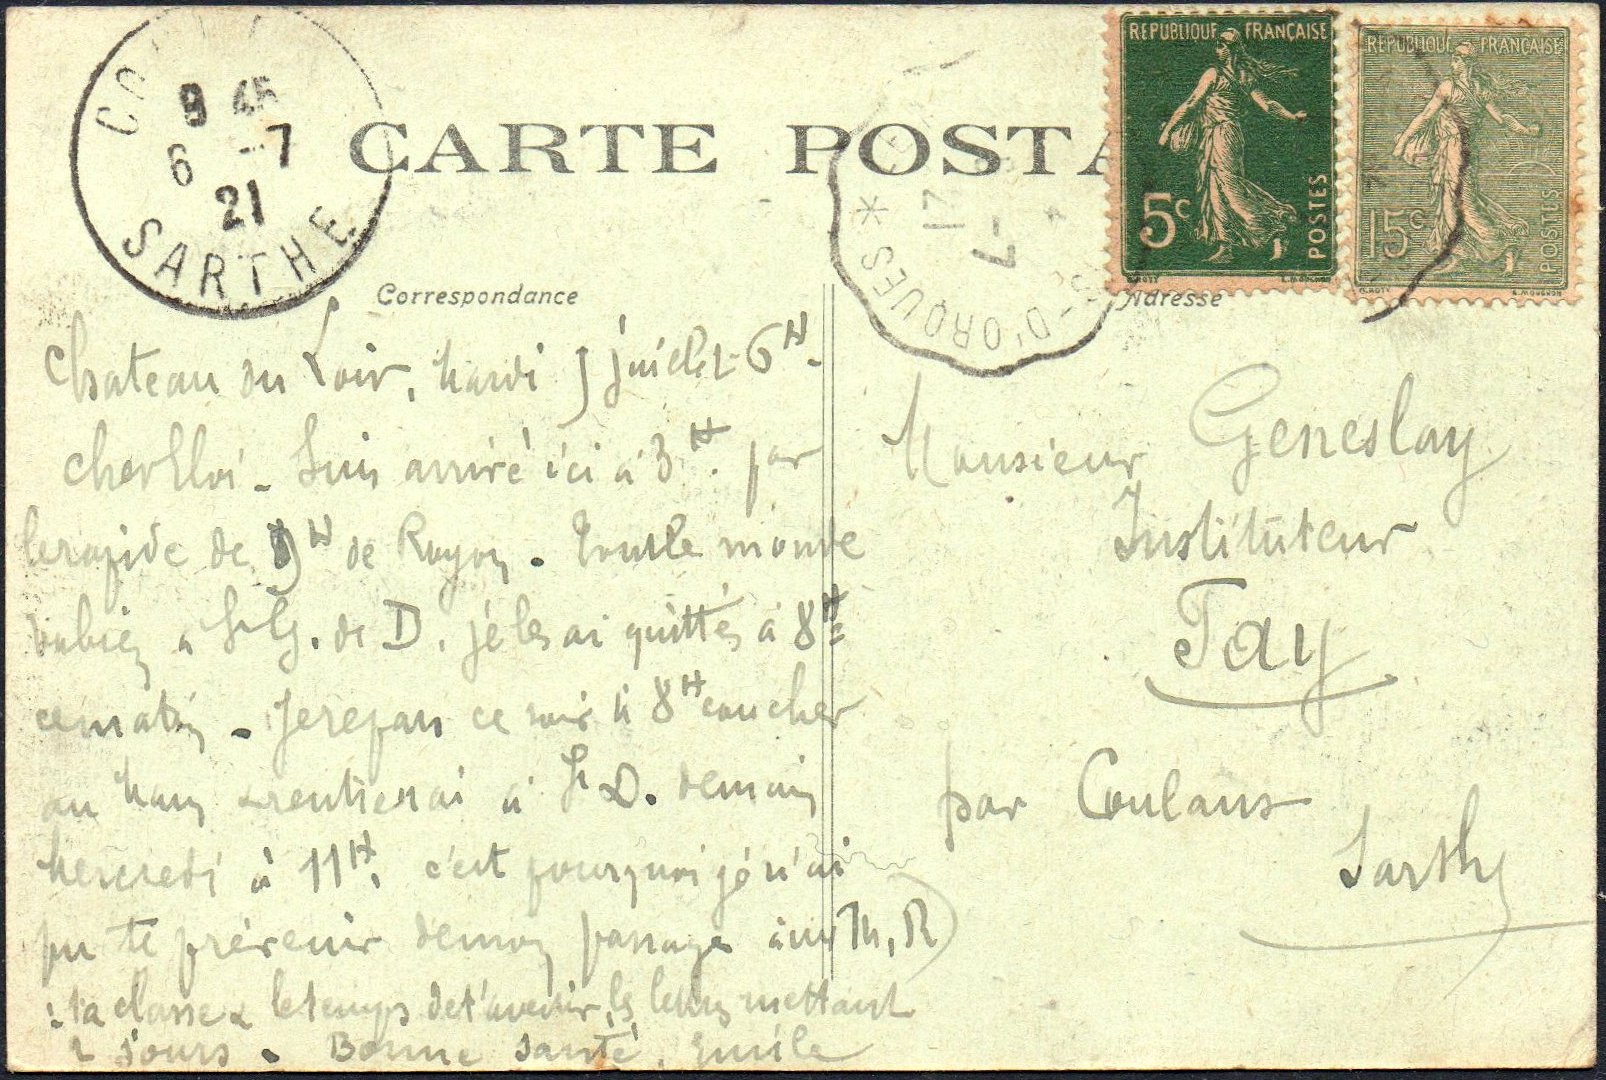 9 45
6 -7
21
SARTHE
CARTE POSTA
REPUBLIQUE FRANÇAISE
5c
POSTES
REPUBLIQUE FRANÇAISE
15c
POSTES
21
7-
-D'ORQUES *
Correspondance
Adresse
Chateau du Loir, Mardi 5 juillet - 6H -
Cher Eloi - Suis arrivé ici à 3H. par
le rapide de 9H de Royan. Tout le monde
va bien à St G. de D. je les ai quittés à 8H
ce matin - Je repars ce soir à 8H coucher
au Mans & rentrerai à St D. demain
Mercredi à 11H. c'est pourquoi je n'ai
pu te prévenir de mon passage
: ta classe & le temps de t'avertir, les lettres mettant
2 jours. Bonne santé. Emile
Monsieur Geneslay
Instituteur
Fay
par Coulans
Sarthe